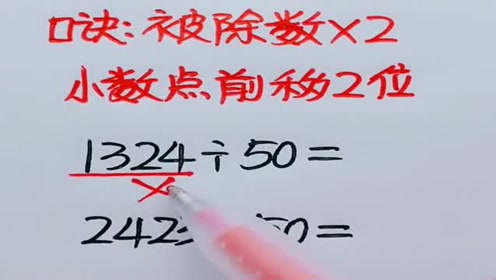 口诀:被除数×2
小数点前移2位
1324÷50=
× 
242 50=